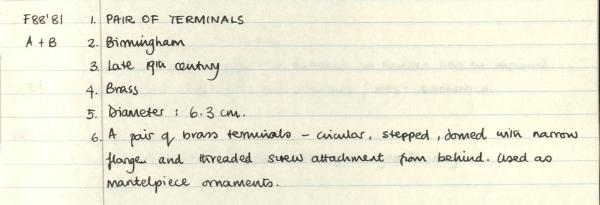 F88'81 1. PAIR OF TERMINALS
A + B 2. Birmingham
3. Late 19th century
4. Brass
5. Diameter : 6.3 cm.
6. A pair of brass terminals - circular, stepped, domed with narrow
flange and threaded screw attachment from behind. Used as
mantelpiece ornaments.